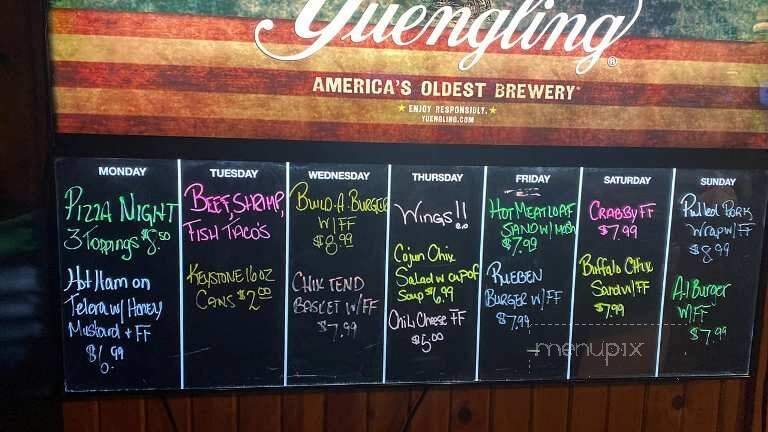 Yuengling®
AMERICA'S OLDEST BREWERY®
★ ENJOY RESPONSIBLY. ★
YUENGLING.COM
MONDAY
PIZZA NIGHT
3 Toppings $8.50
Hot Ham on
Telera w/ Honey
Mustard + FF
$6.99
TUESDAY
BEEF, SHRIMP,
FISH TACO'S
KEYSTONE 16 OZ
CANS $2.00
WEDNESDAY
BUILD-A-BURGER
W/FF
$8.99
CHIX TEND
BASKET W/FF
$7.99
THURSDAY
Wings!!
Cajun Chix
Salad w/ cup of
Soup $6.99
Chili Cheese FF
$5.00
FRIDAY
HOT MEATLOAF
SAND w/ MASH
$7.99
RUEBEN
BURGER W/FF
$7.99
SATURDAY
CRABBY FF
$7.99
Buffalo Chix
Sand w/FF
$7.99
SUNDAY
Pulled Pork
Wrap w/FF
$8.99
A1 Burger
W/FF
$7.99
menupix